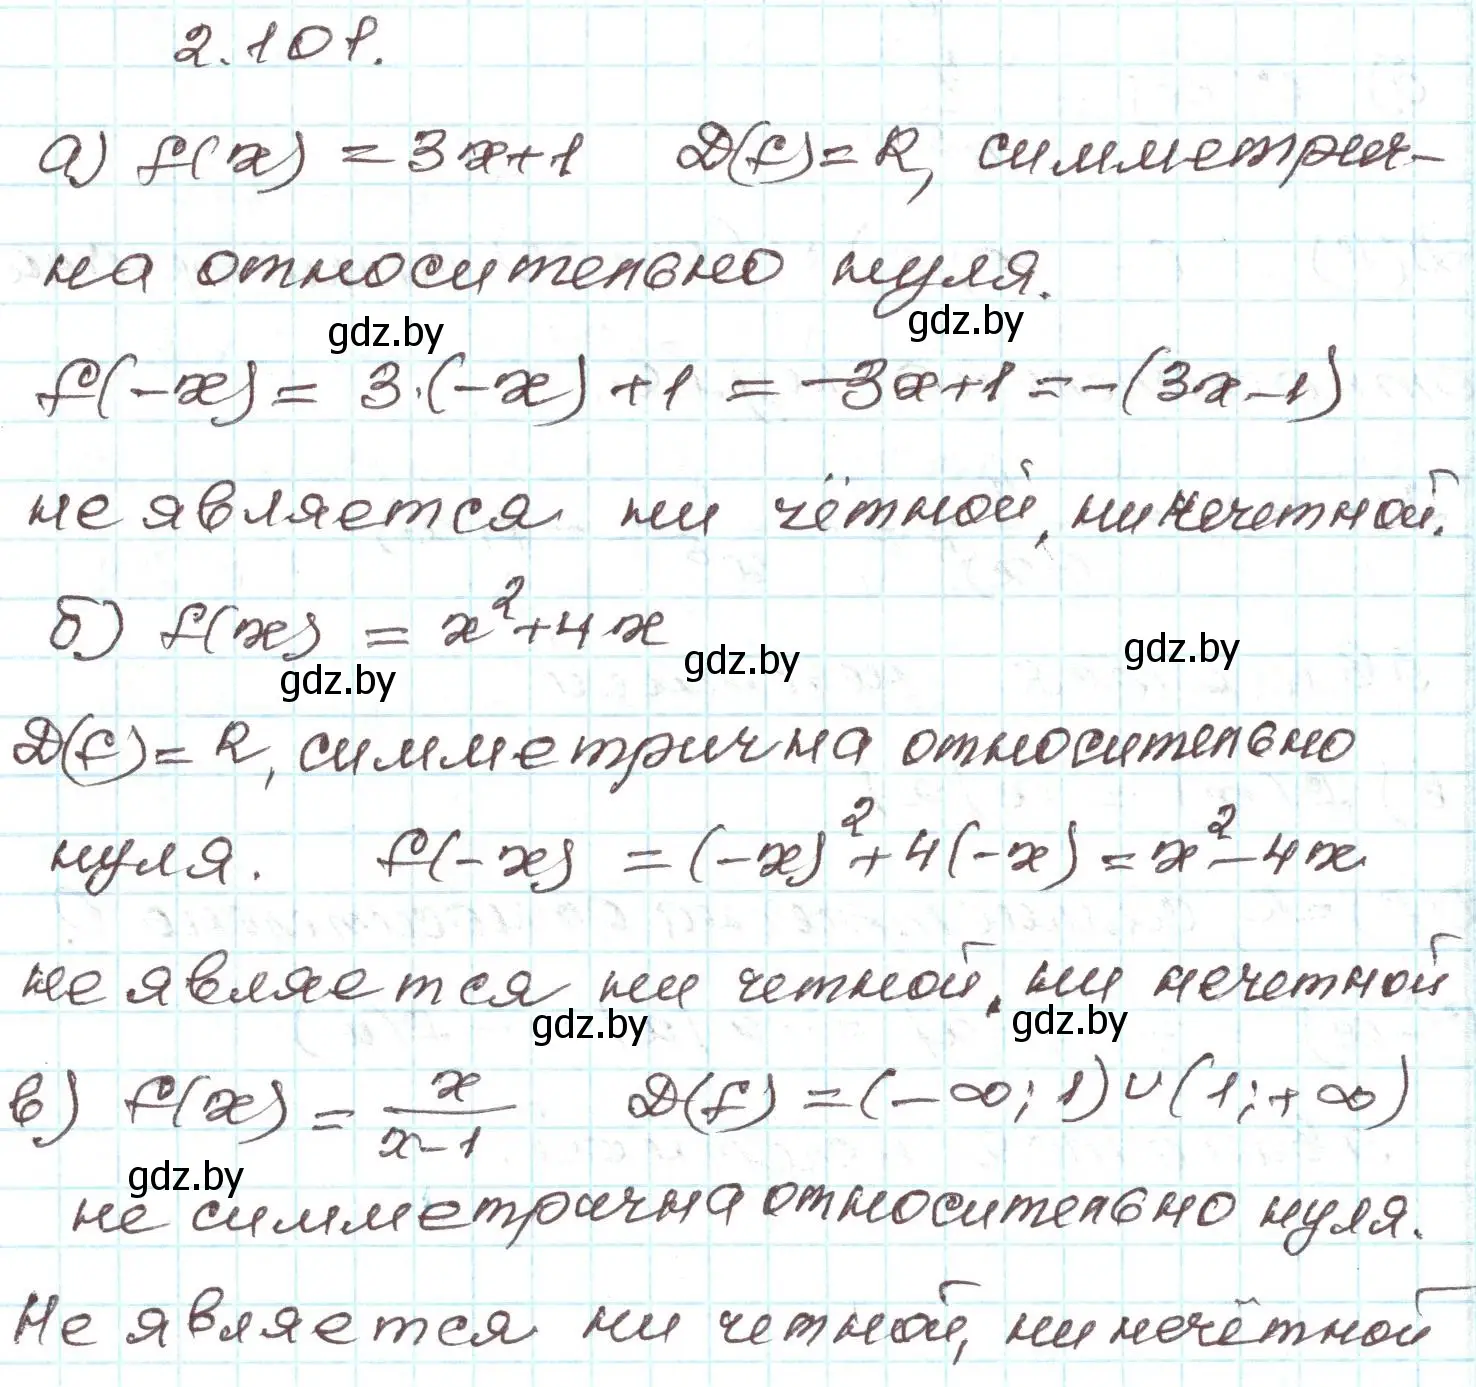 2.101.
а) f(x) = 3x+1 D(f)=R, симметрич-
на относительно нуля.
gdz.by
gdz.by
f(-x) = 3·(-x) + 1 = -3x+1 = -(3x-1)
не является ни чётной, ни нечетной.
б) f(x) = x²+4x
gdz.by
gdz.by
gdz.by
D(f)=R, симметрична относительно
нуля. f(-x) = (-x)²+4(-x) = x²-4x
не является ни четной, ни нечетной
gdz.by
gdz.by
в) f(x) = x/(x-1) D(f) = (-∞; 1) ∪ (1; +∞)
gdz.by
не симметрична относительно нуля.
Не является ни четной, ни нечётной